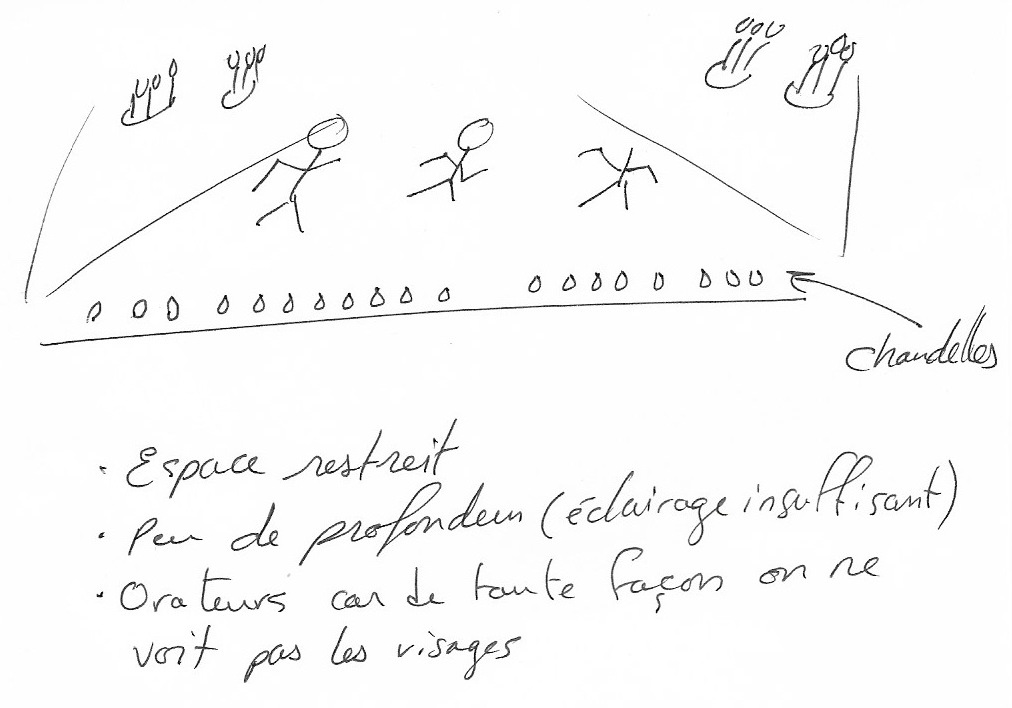 chandelles
· Espace restreit
· Peu de profondeur (éclairage insuffisant)
· Orateurs car de toute façon on ne
voit pas les visages